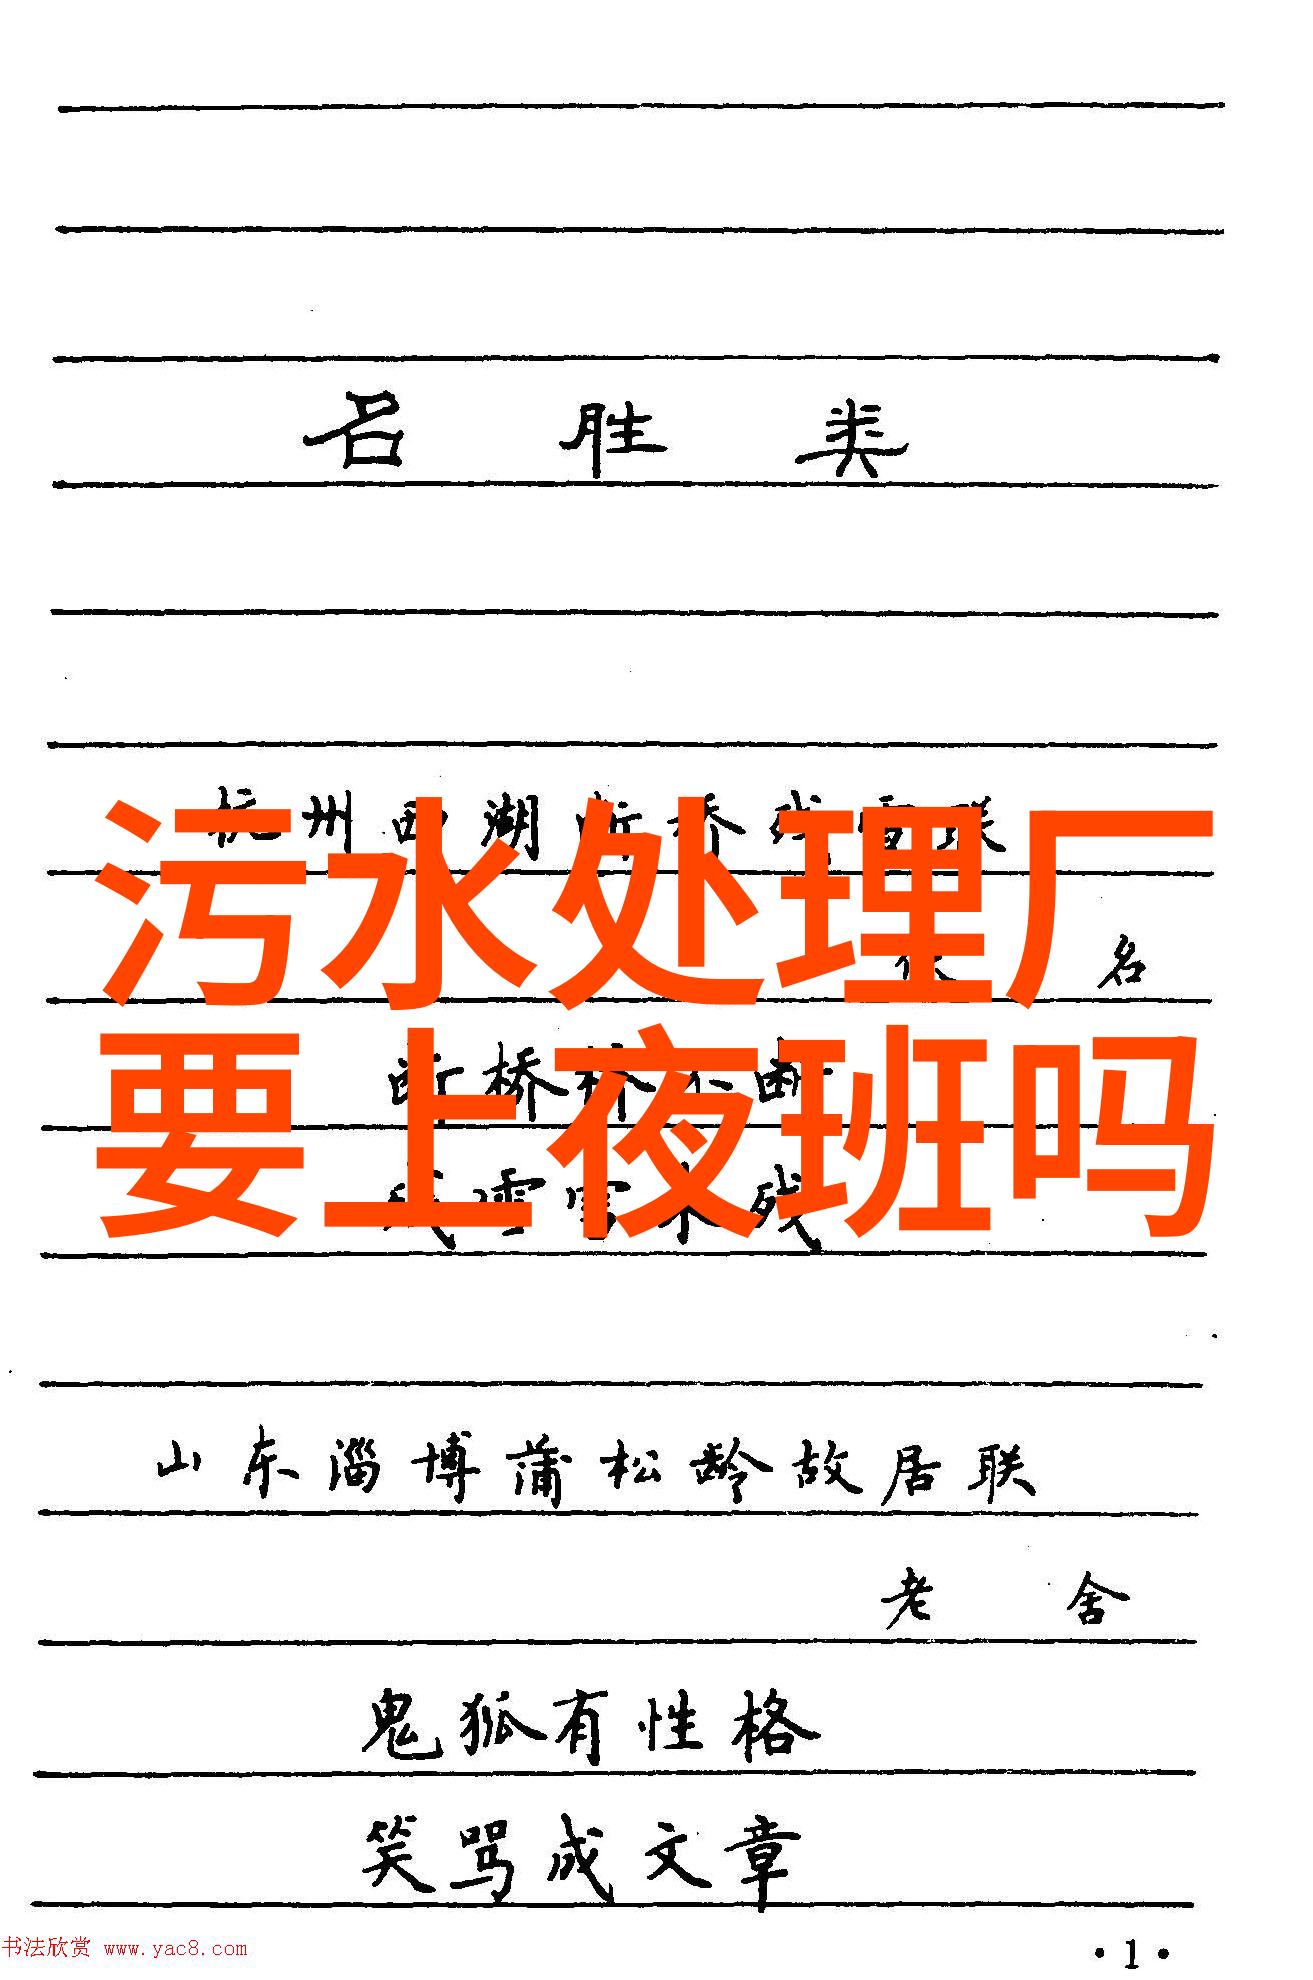 名胜类
杭州西湖断桥残雪联
污水处理厂
佚名
要上夜班吗
断桥桥不断
残雪雪未残
山东淄博蒲松龄故居联
老舍
鬼狐有性格
笑骂成文章
书法欣赏 www.yac8.com
·1·